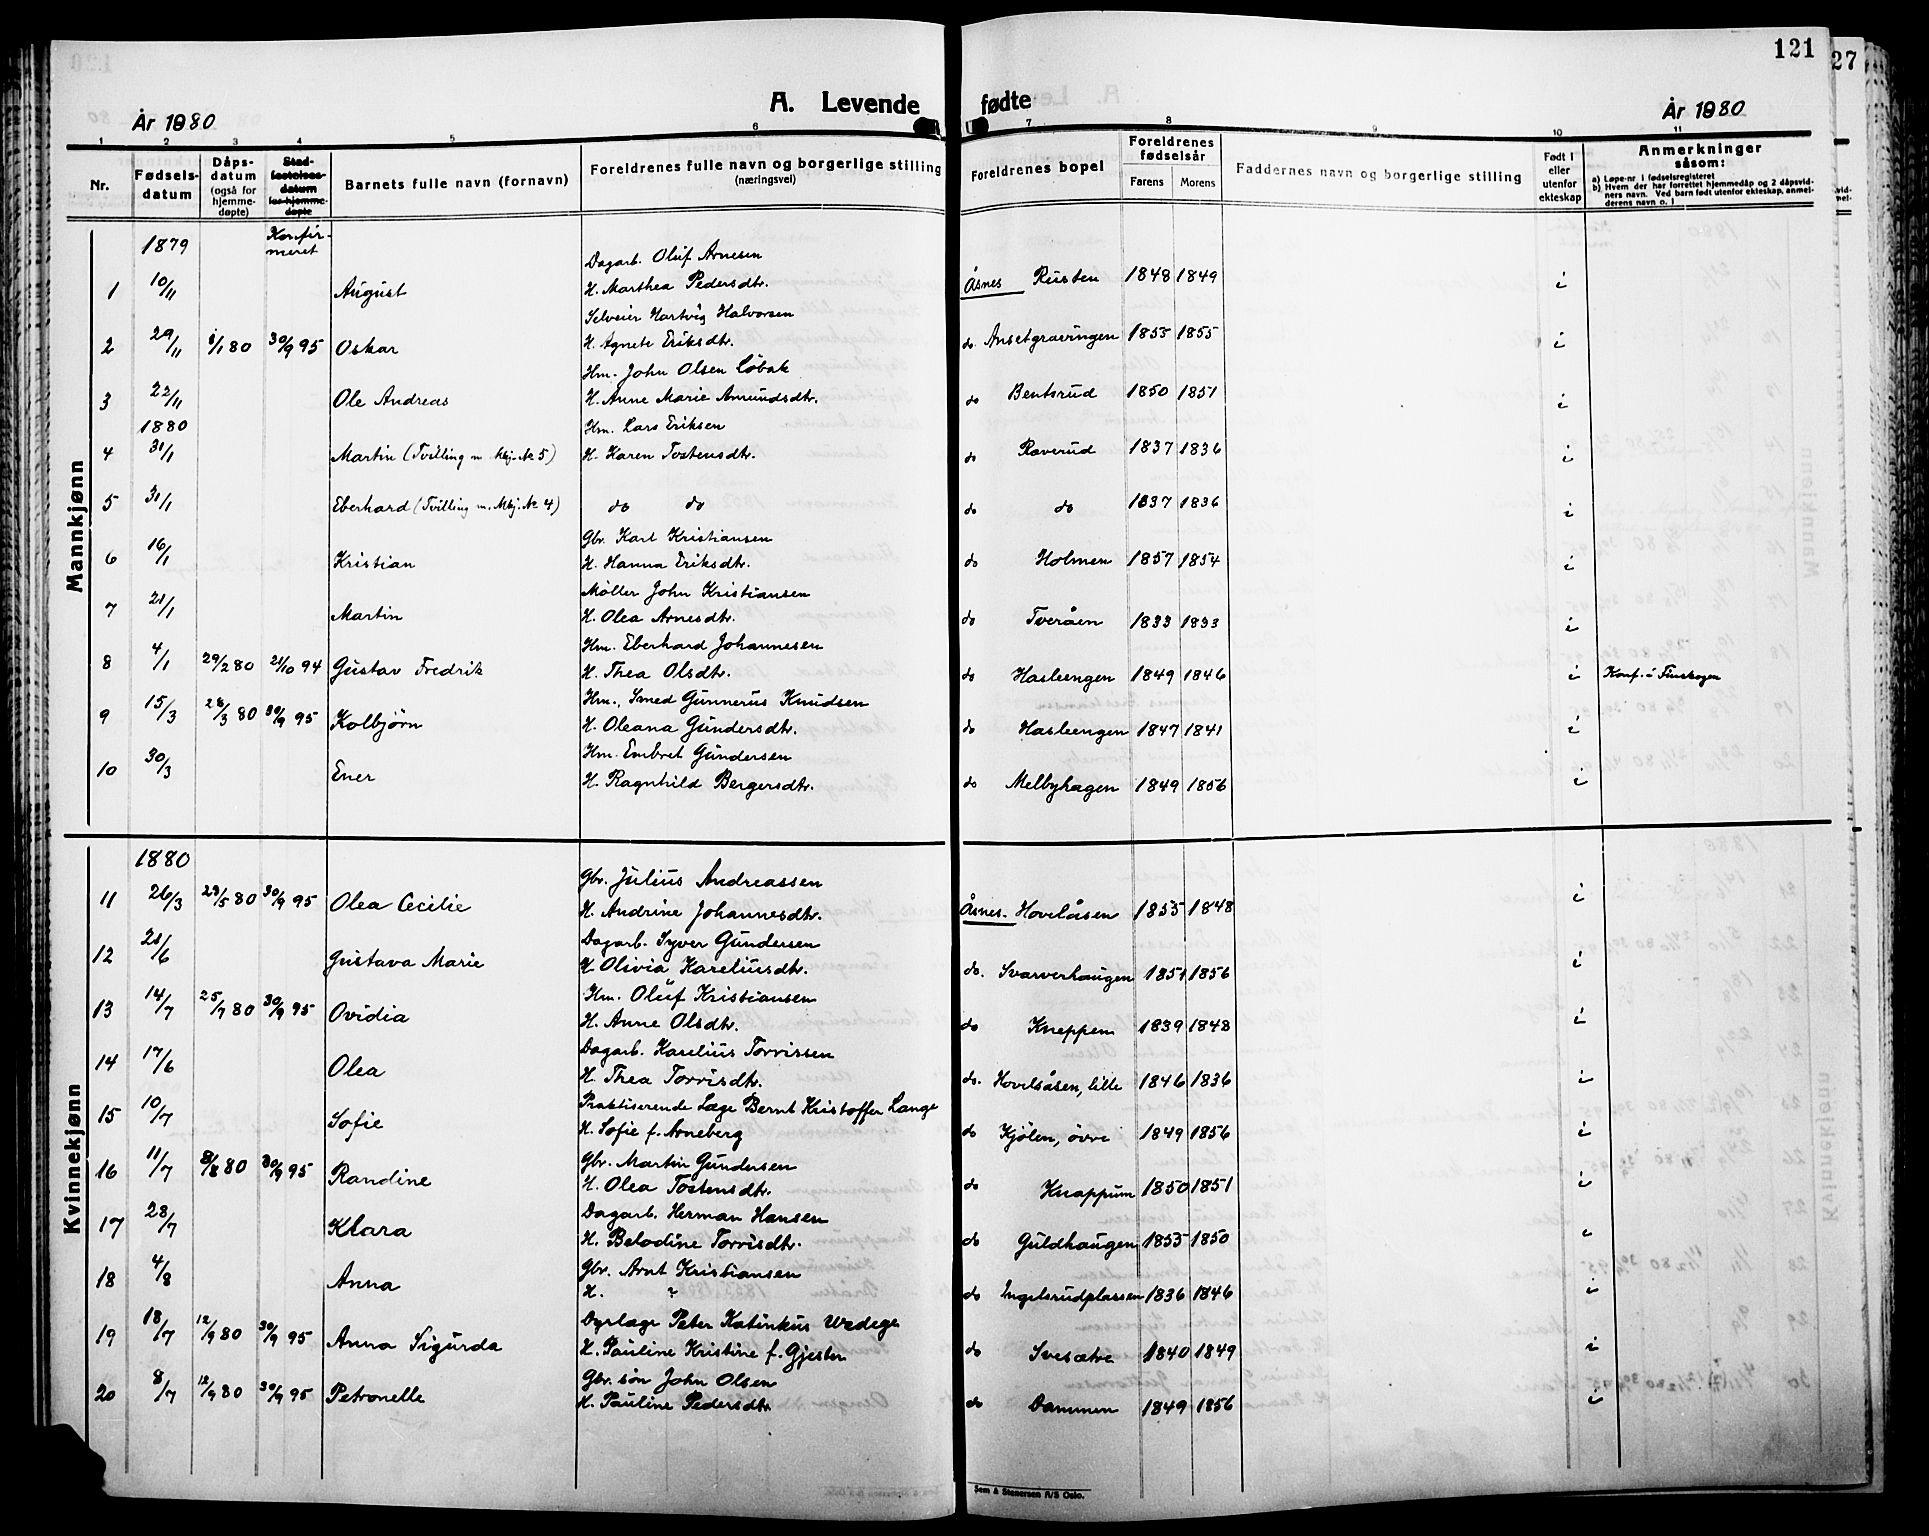 121
27
A. Levende fødte
År 1880
År 1880
1 2 3 4 5 6 7 8 9 10 11
Nr.
Fødsels-datum
Dåps-datum (også for hjemme-døpte)
Stad-festelses-datum for hjemme-døpte
Barnets fulle navn (fornavn)
Foreldrenes fulle navn og borgerlige stilling (næringsvei)
Foreldrenes bopel
Foreldrenes fødselsår
Farens Morens
Faddernes navn og borgerlige stilling
Født i eller utenfor ekteskap
Anmerkninger såsom:
a) Løpe-nr. i fødselsregisteret
b) Hvem der har forrettet hjemmedåp og 2 dåpsvid-
ners navn. Ved barn født utenfor ekteskap, anmel-
derens navn o. l.
Mannkjønn
1879 Konfir-meret
Dagarb. Oluf Arnesen
1 10/11 August H. Marthea Pedersdtr. Åsnes Rusten 1848 1849 i
Selveier Hartvig Halvorsen
2 29/11 1/1 80 30/9 95 Oskar H. Agnete Eriksdtr. do. Ansetgravingen 1855 1855 i
Hm. John Olsen Løbak
3 22/11 Ole Andreas H. Anne Marie Amundsdtr. do Bentsrud 1850 1851 i
1880 Hm. Lars Eriksen
4 31/1 Martin (Tvilling m. Mkj. No 5) H. Karen Tostensdtr. do Raverud 1837 1836 i
5 31/1 Eberhard (Tvilling m. Mkj. No 4) do do do do 1837 1836 i
Gbr. Karl Kristiansen
6 16/1 Kristian H. Hanna Eriksdtr. do Holmen 1857 1854 i
Møller John Kristiansen
7 21/1 Martin H. Olea Arnesdtr. do Tveråen 1833 1833 i
Hm. Eberhard Johannesen
8 4/1 29/2 80 21/10 94 Gustav Fredrik H. Thea Olsdtr. do Hasleengen 1849 1846 i Konf. i Finskogen
Hm., Smed Gunnerus Knudsen
9 15/3 28/3 80 30/9 95 Kolbjørn H. Oleana Gundersdtr. do Hasleengen 1847 1841 i
Hm. Embret Gundersen
10 30/3 Ener H. Ragnhild Bergersdtr. do Melbyhagen 1849 1856 i
Kvinnekjønn
1880
Gbr. Julius Andreassen
11 26/3 23/5 80 30/9 95 Olea Cecilie H. Andrine Johannesdtr. Åsnes. Hovelåsen 1855 1848 i
Dagarb. Syver Gundersen
12 21/6 Gustava Marie H. Olivia Kareliusdtr. do. Svarverhaugen 1851 1856 i
Hm. Oluf Kristiansen
13 14/7 25/7 80 30/9 95 Ovidia H. Anne Olsdtr. do Kneppen 1839 1848 i
Dagarb. Karelius Torvissen
14 17/6 Olea H. Thea Torvisdtr. do. Hovelsåsen, lille 1846 1836 i
Praktiserende Læge Bernt Kristoffer Lange
15 10/7 Sofie H. Sofie f. Arneberg do Kjölen, övre 1849 1856 i
Gbr. Martin Gundersen
16 11/7 8/8 80 30/9 95 Randine H. Olea Tostensdtr. do Knappum 1850 1851 i
Dagarb. Herman Hansen
17 28/7 Klara H. Belodine Torrisdtr. do Guldhaugen 1855 1850 i
Gbr. Arnt Kristiansen
18 4/8 Anna H. ? do Ingelsrudplassen 1836 1846 i
Dyrlæge Peter Katinkus Wedege
19 18/7 12/9 80 30/9 95 Anna Sigurda H. Pauline Kristine f. Gjester do Svesætre 1840 1849 i
Gbr. søn John Olsen
20 8/7 12/9 80 30/9 95 Petronelle H. Pauline Pedersdtr. do Dammen 1849 1856 i
Sem & Stenersen A/S Oslo.